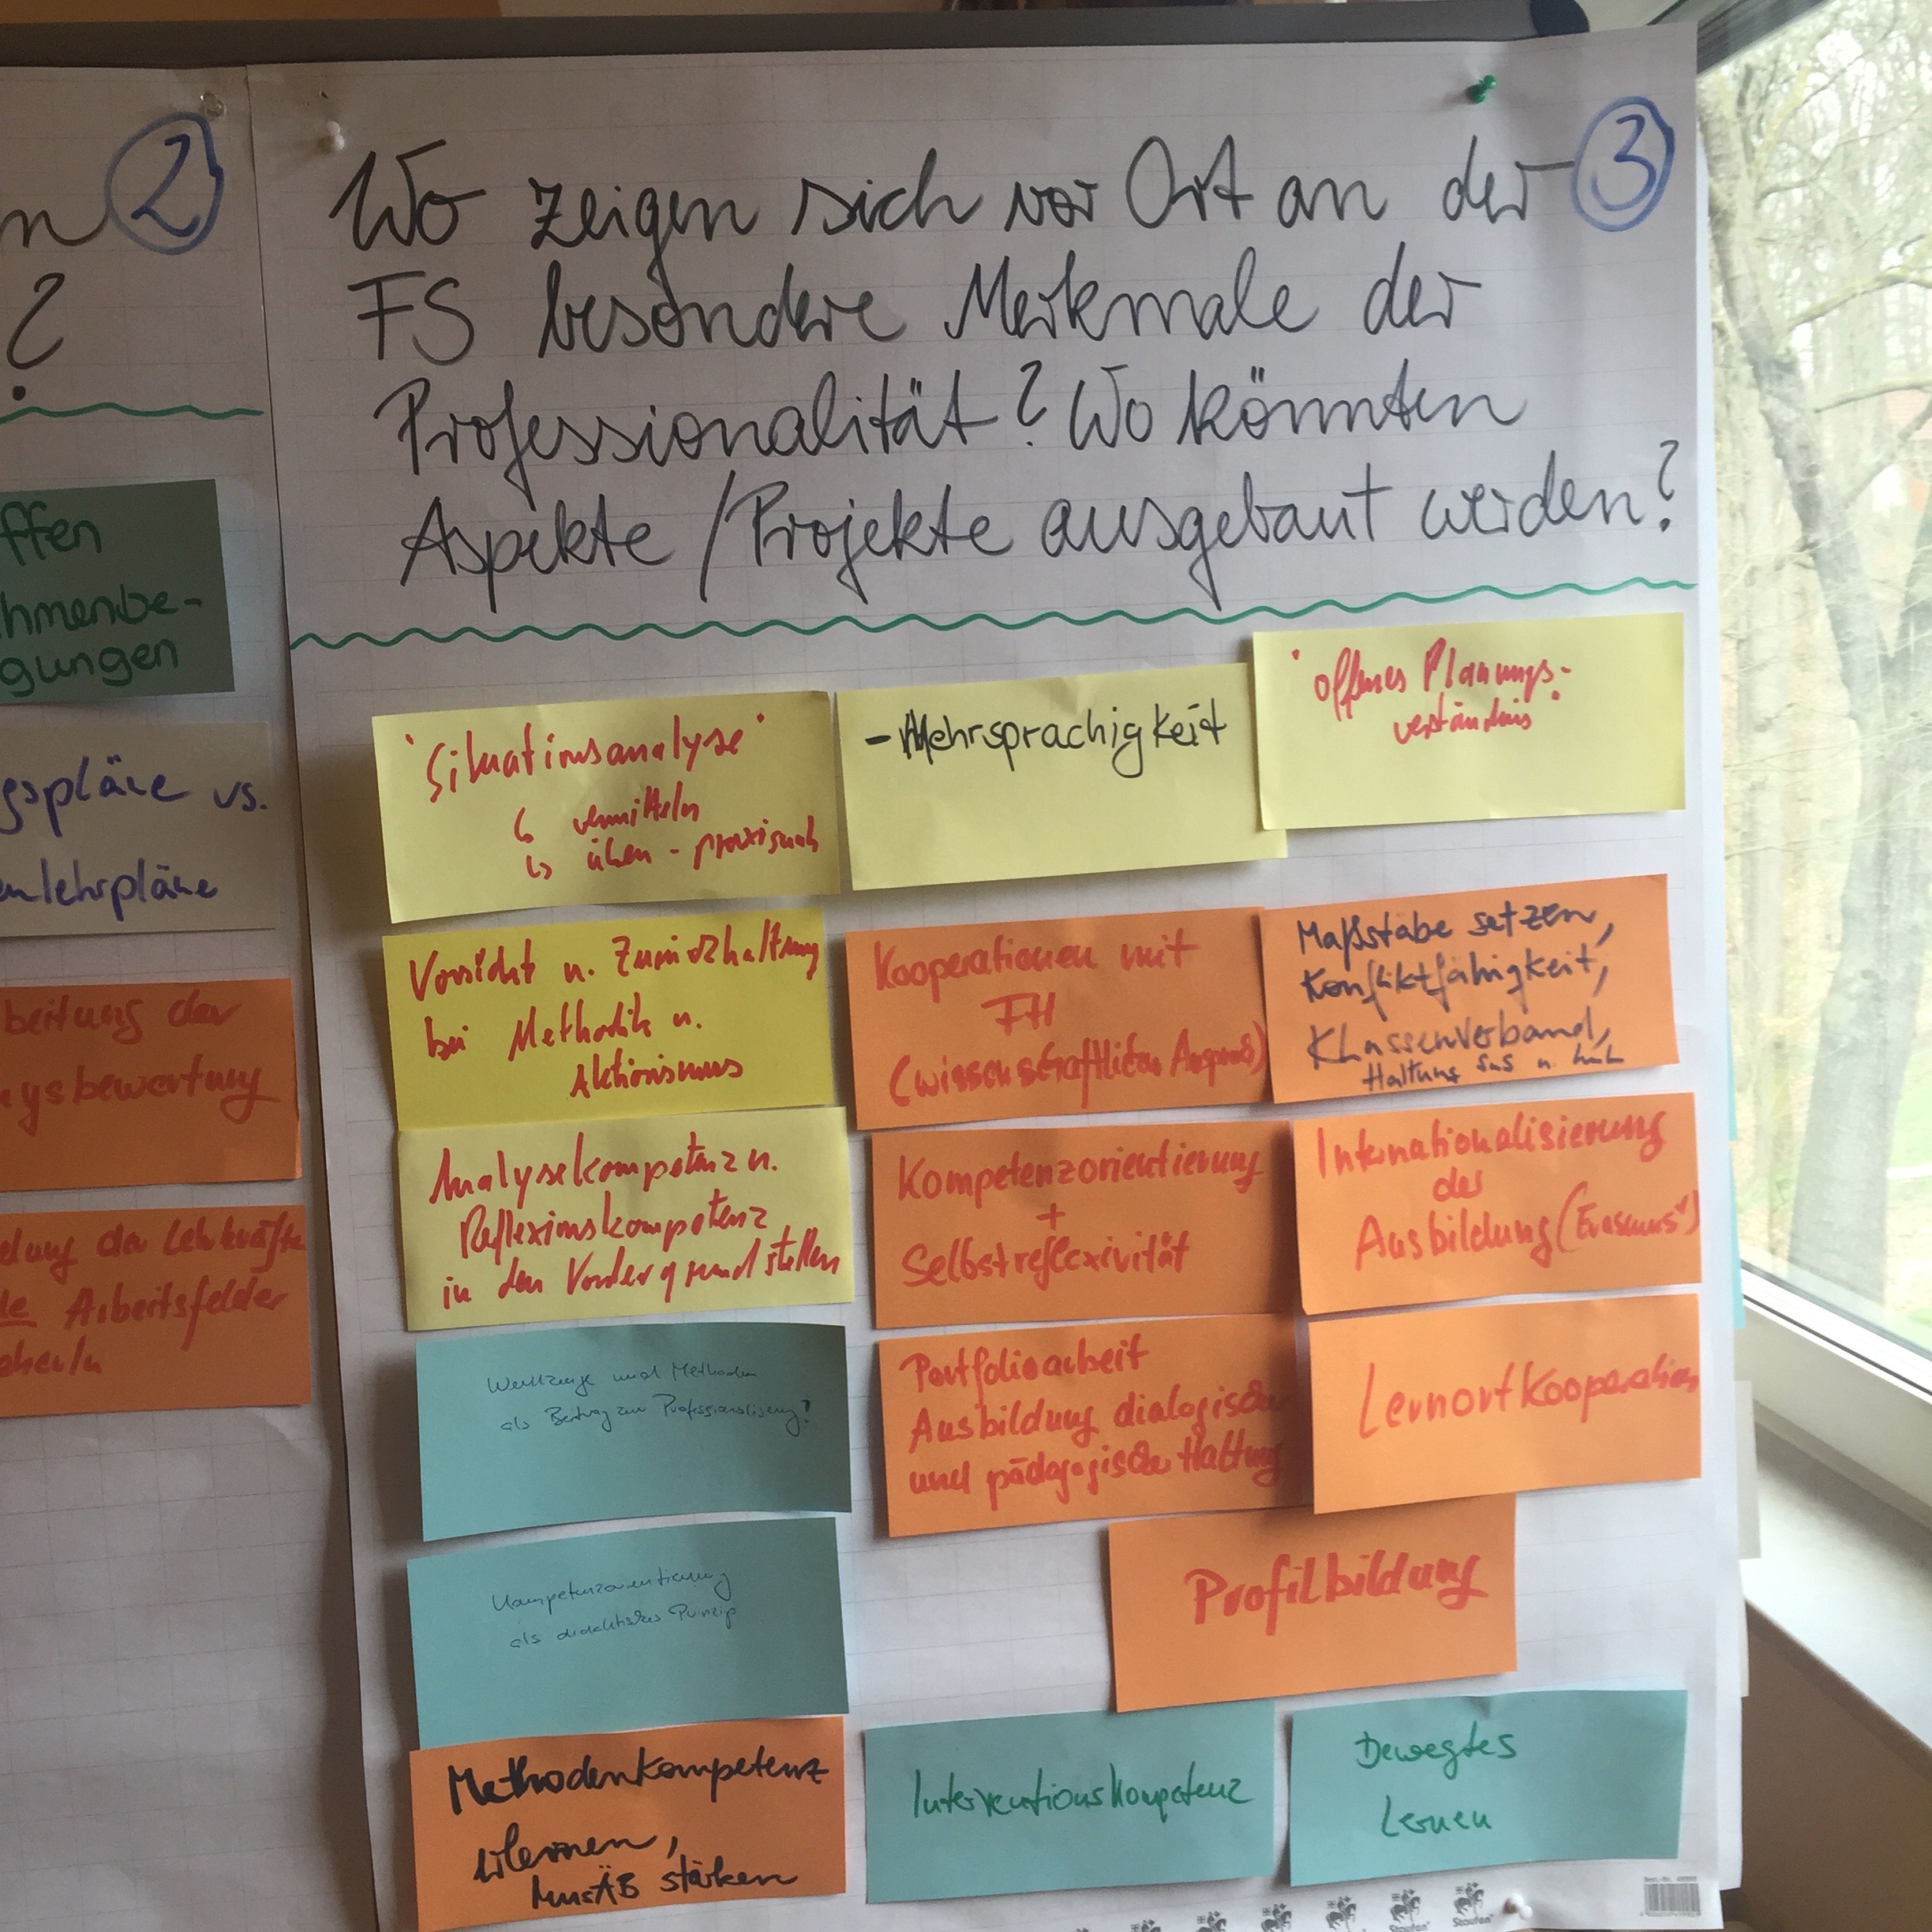 n 2
?
ffen
hmenbe-
gungen
gspläne vs.
enlehrpläne
beitung der
gsbewertung
dung der Lehrkräfte
le Arbeitsfelder
3
Wo zeigen sich vor Ort an der
FS besondere Merkmale der
Professionalität? Wo könnten
Aspekte / Projekte ausgebaut werden?
"Situationsanalyse"
↳ vermitteln
↳ üben - praxisnah
- Mehrsprachigkeit
"offenes Planungs-
verständnis"
Vorsicht u. Zurückhaltung
bei Methodik u.
Aktionismus
Kooperationen mit
FH
(wissenschaftlicher Anspruch)
Maßstäbe setzen,
Konfliktfähigkeit,
Klassenverband,
Haltung SuS u.
Analysekompetenz u.
Reflexionskompetenz
in den Vordergrund stellen
Kompetenzorientierung
+
Selbstreflexivität
Internationalisierung
der
Ausbildung (Erasmus+)
Werkzeuge und Methoden
als Beitrag zur Professionalisierung?
Portfolioarbeit
Ausbildung dialogische
und pädagogische Haltung
Lernort Kooperation
Kompetenzorientierung
als didaktisches Prinzip
Profilbildung
Methodenkompetenz
erlernen,
MusÄB stärken
Interventionskompetenz
Bewegtes
Lernen
Staufen
Staufen